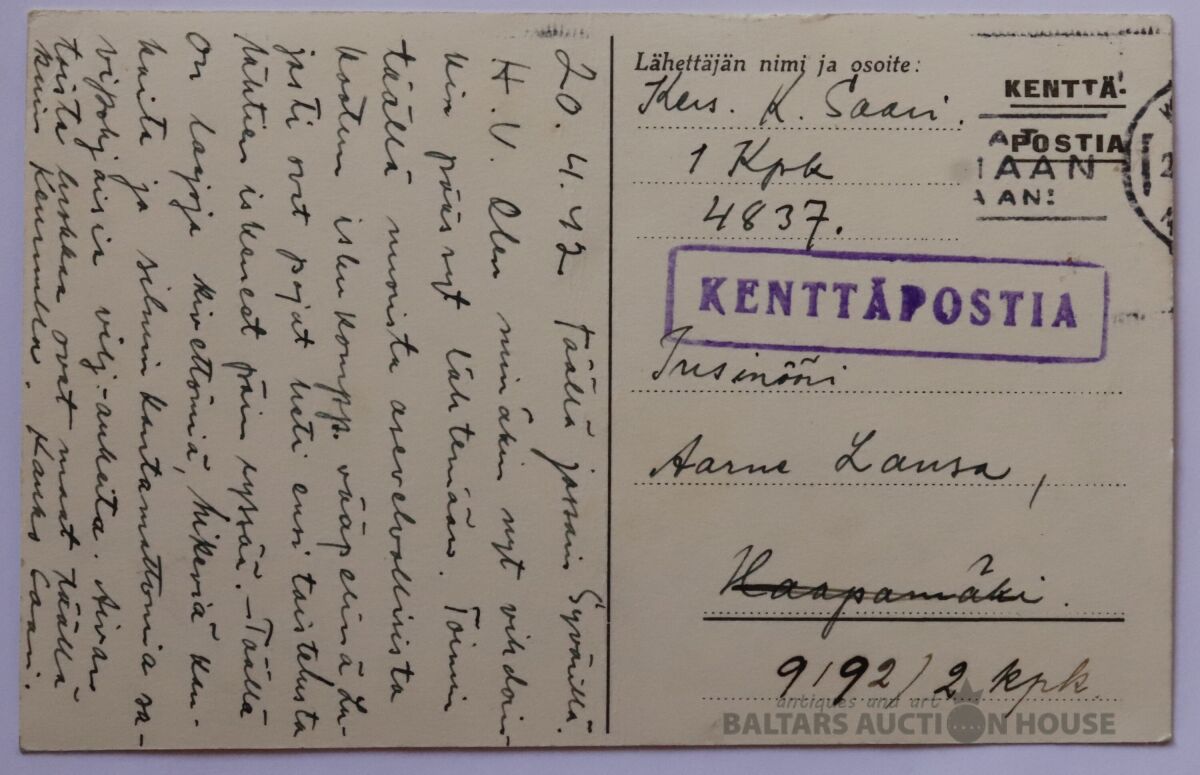 20. 4. 42 Täällä jossain Syvärillä.
H. V. Olen minäkin nyt vihdoin-
kin päässyt lähtemään. Toimin
täällä nuorista asevelvollisista
kootun iskukomp. vääpelinä Lu-
jasti ovat pojat heti ensi taistelusta
lähtien iskeneet päin ryssää. – Täällä
on laajoja kivettömiä, hikeviä kun-
naita ja silmin kantamattomia sa-
vipohjaisia vilj. aukeita. Aivan
toista luokkaa ovat maat täällä
kuin Kannuksella. Kauko Saari.
Lähettäjän nimi ja osoite:
Kers. K. Saari.
1 Kpk
4837.
KENTTÄ-
POSTIA
AT
MAAN
AAN!
KENTTÄPOSTIA
Insinööri
Aarne Lansa,
Haapamäki.
9192/2 kpk.
antiques and art
BALTARS AUCTION HOUSE